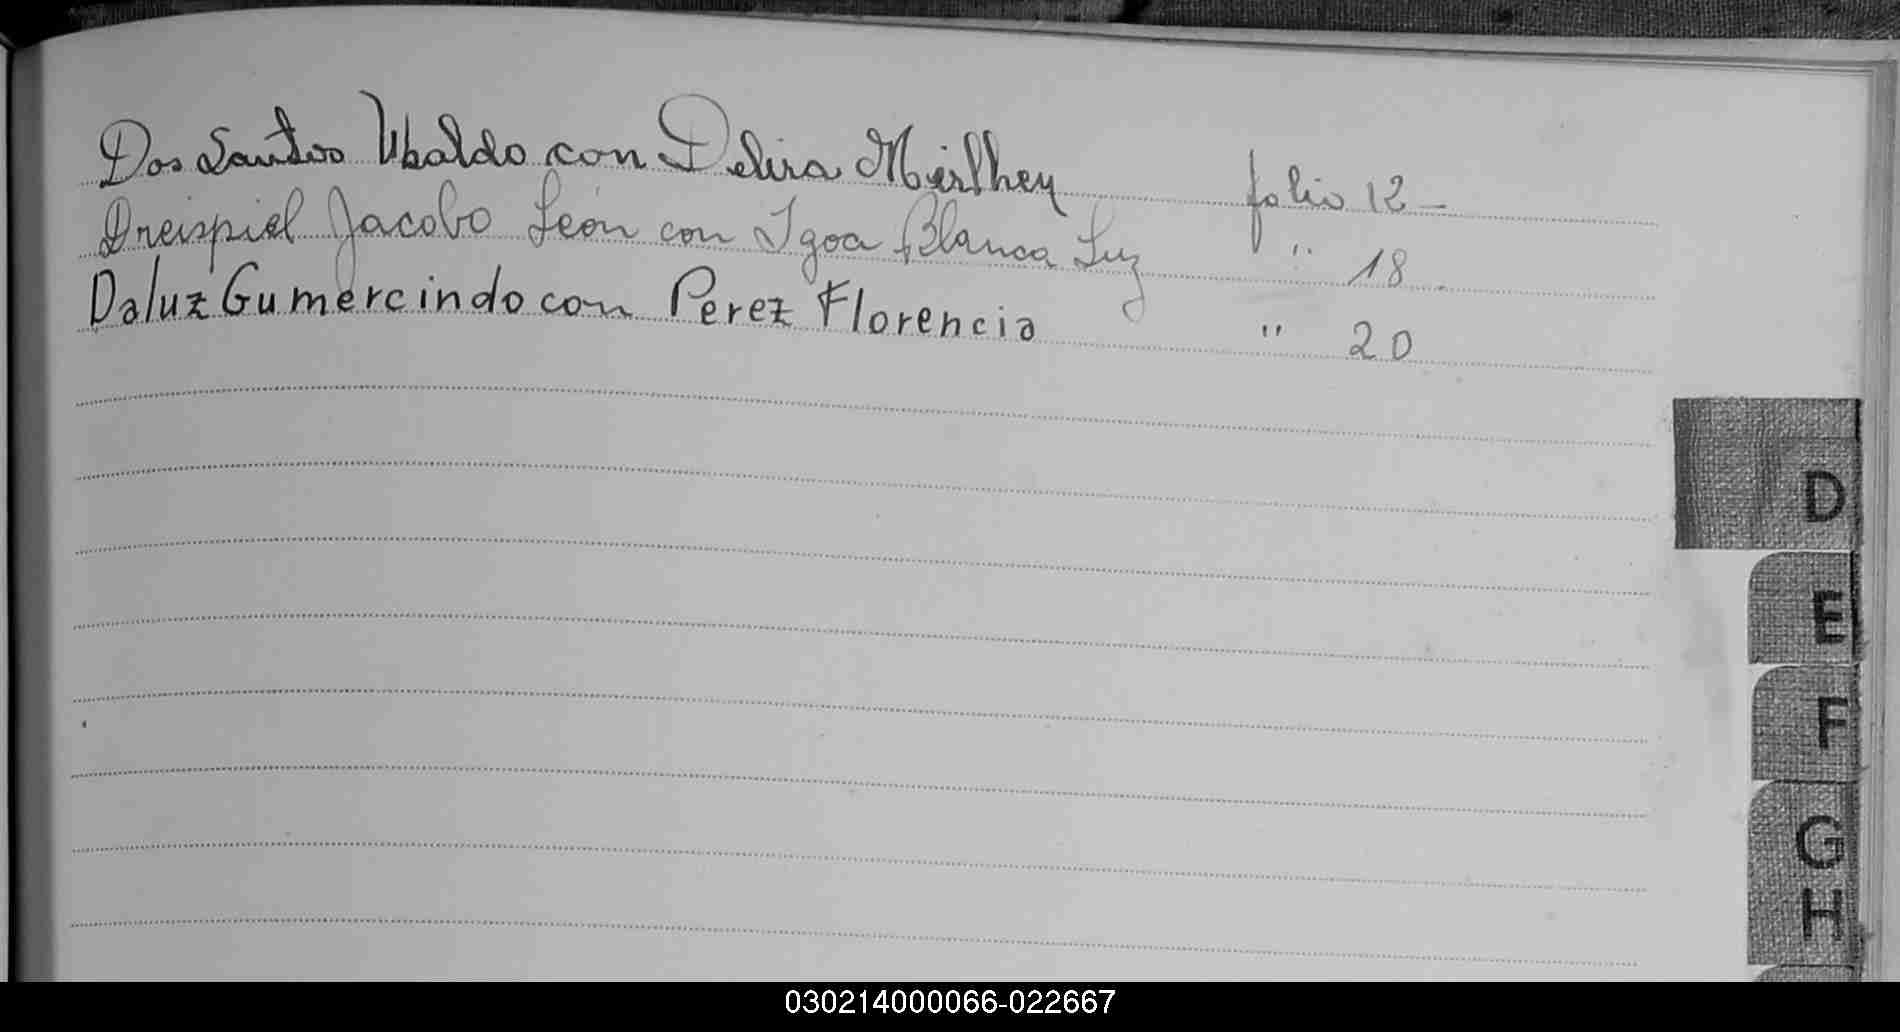 Dos Santos Ubaldo con Delira Mirlhey folio 12 -
Dreispiel Jacobo León con Igoa Blanca Luz " 18
Daluz Gumercindo con Perez Florencia " 20
D
E
F
G
H
030214000066-022667